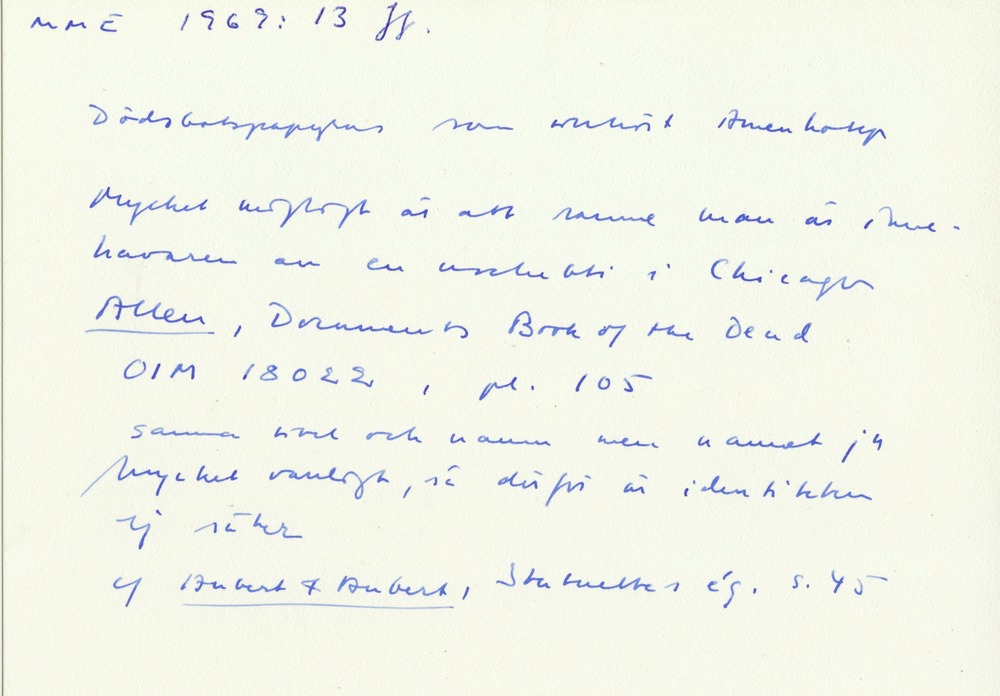 MME 1969: 13 ff.
Dödsbokspapyrus som tillhört Amenhotep
Mycket möjligt är att samme man är inne-
havaren av en uschebti i Chicago
Allen, Documents Book of the Dead
OIM 18022, pl. 105
samma titel och namn men namnet ju
Mycket vanligt, så därför är identiteten
ej säker
cf Aubert & Aubert, Statuettes ég. s. 45